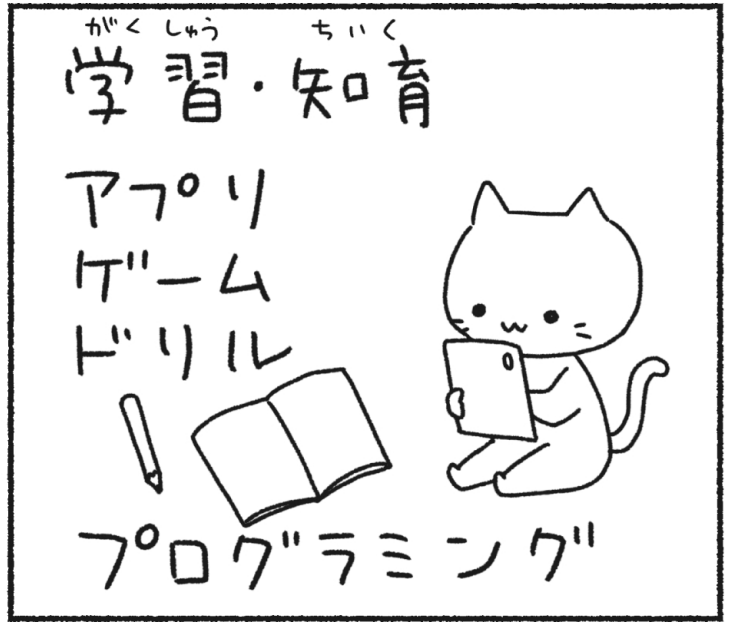 がくしゅう ちいく
学習・知育
アプリ
ゲーム
ドリル
プログラミング